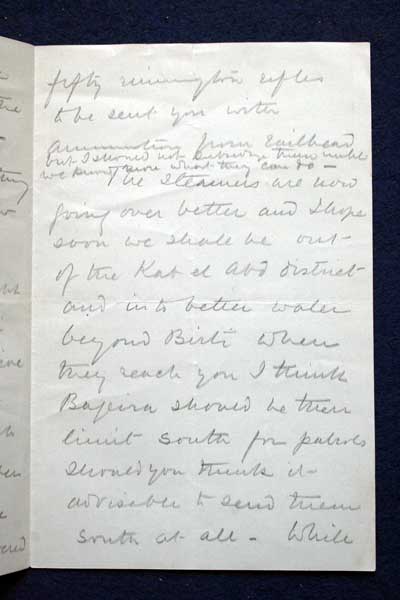 fifty rimington rifles
to be sent you with
ammunition from Railhead
but I should not subsidize them until
we know more what they can do -
The Steamers are now
going over better and I hope
soon we shall be out
of the Kab el Abd district
and into better water
beyond Birti when
they reach you I think
Bageira should be their
limit south for patrols
should you think it
adviseble to send them
south at all - While